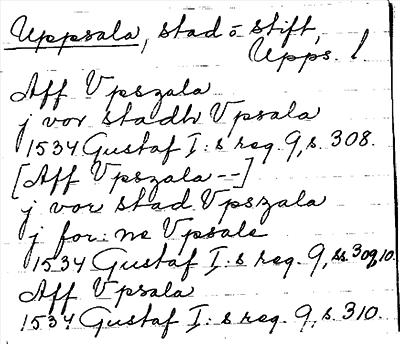 Uppsala, stad o stift,
Upps. l.
Aff Vpszala
j vor stadh Vpsala
1534 Gustaf I:s reg. 9, s. 308.
[Aff Vpszala --]
j vor stad Vpszala
j for: ne Vpsale
1534 Gustaf I:s reg. 9, ss. 309, 10.
Aff Vpsala
1534 Gustaf I:s reg. 9, s. 310.